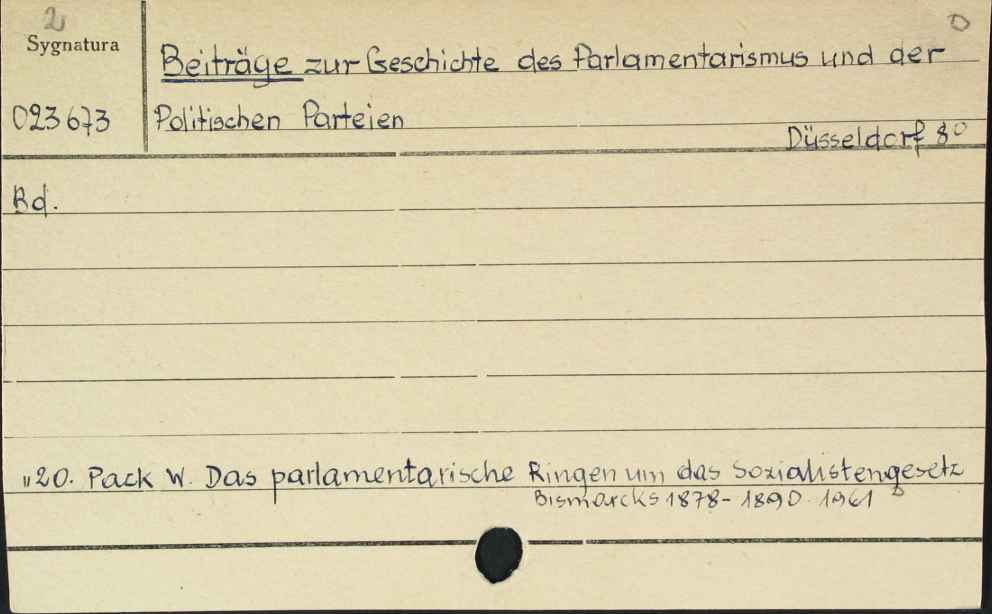 2 D
Sygnatura
Beiträge zur Geschichte des Parlamentarismus und der
023673 Politischen Parteien
Düsseldorf 8°
Bd.
"20. Pack W. Das parlamentarische Ringen um das Sozialistengesetz
Bismarcks 1878-1890. 1961